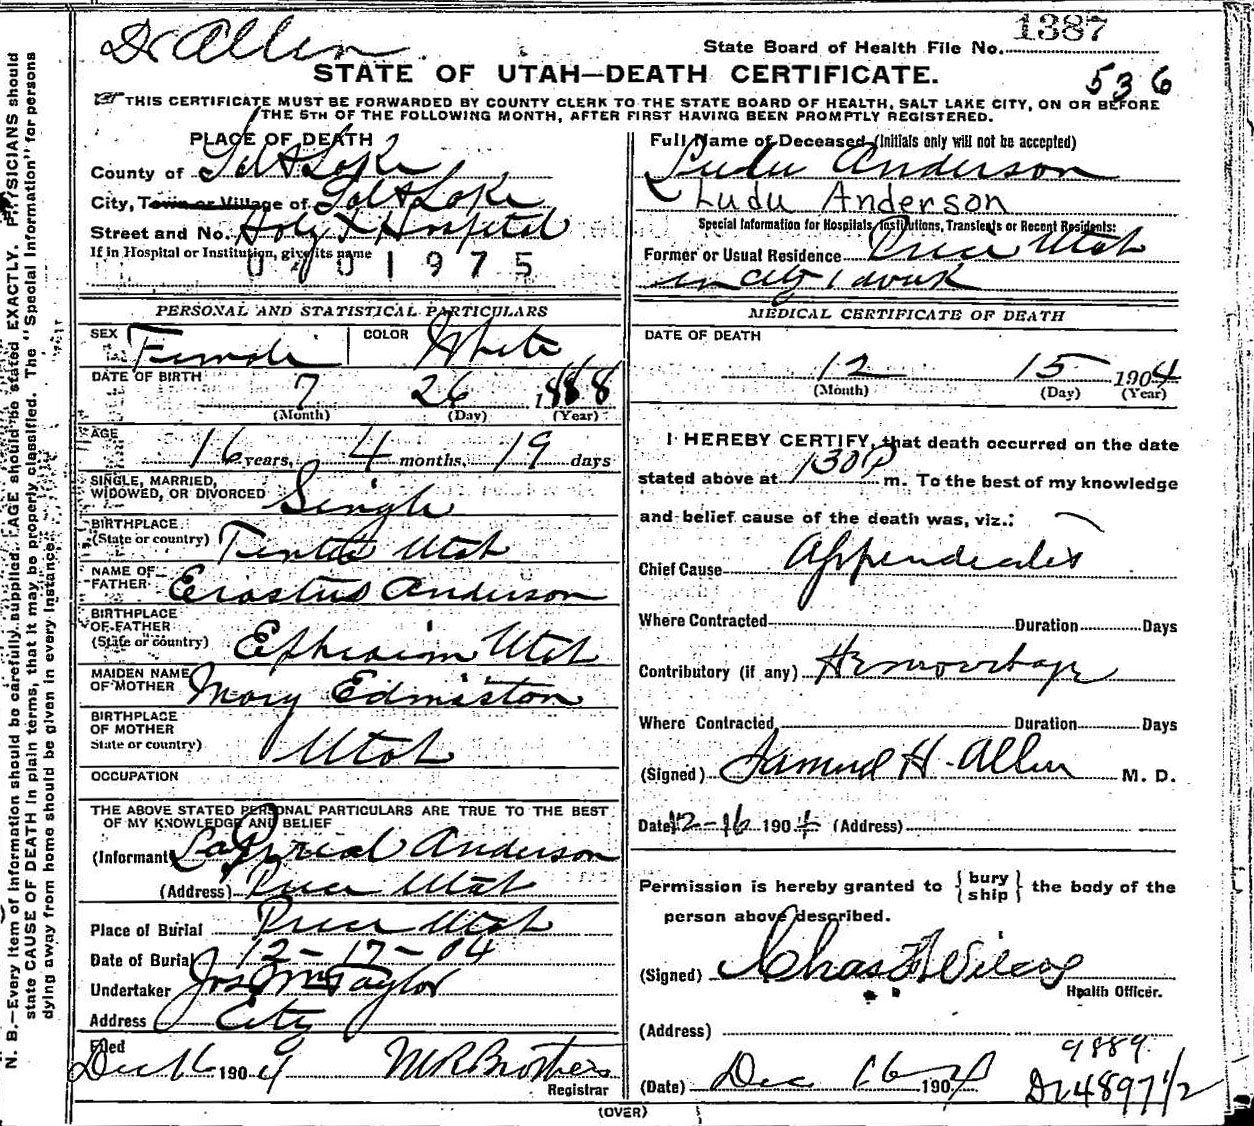 Dr Allen
State Board of Health File No. 1387
STATE OF UTAH—DEATH CERTIFICATE.
536
THIS CERTIFICATE MUST BE FORWARDED BY COUNTY CLERK TO THE STATE BOARD OF HEALTH, SALT LAKE CITY, ON OR BEFORE
THE 5TH OF THE FOLLOWING MONTH, AFTER FIRST HAVING BEEN PROMPTLY REGISTERED.
PLACE OF DEATH
County of Salt Lake
City, Town or Village of Salt Lake
Street and No. Holy X Hospital
If in Hospital or Institution, give its name
0701975
PERSONAL AND STATISTICAL PARTICULARS
SEX Female COLOR White
DATE OF BIRTH 7 26 1888
(Month) (Day) (Year)
AGE 16 years, 4 months, 19 days
SINGLE, MARRIED,
WIDOWED, OR DIVORCED Single
BIRTHPLACE
(State or country) Utah
NAME OF
FATHER Erastus Anderson
BIRTHPLACE
OF FATHER
(State or country) Ephraim Utah
MAIDEN NAME
OF MOTHER Mary Edmiston
BIRTHPLACE
OF MOTHER
State or country) Utah
OCCUPATION
THE ABOVE STATED PERSONAL PARTICULARS ARE TRUE TO THE BEST
OF MY KNOWLEDGE AND BELIEF
(Informant Anderson
(Address) Price Utah
Place of Burial Price Utah
Date of Burial 12-17-04
Undertaker Jos Wm Taylor
Address City
Filed
Dec 16 1904 Brothers
Registrar
Full Name of Deceased (Initials only will not be accepted)
Ludu Anderson
Ludu Anderson
Special Information for Hospitals, Institutions, Transients or Recent Residents:
Former or Usual Residence Price Utah
in city 1 week
MEDICAL CERTIFICATE OF DEATH
DATE OF DEATH
12 15 1904
(Month) (Day) (Year)
I HEREBY CERTIFY, that death occurred on the date
stated above at 130 P m. To the best of my knowledge
and belief cause of the death was, viz.:
Chief Cause
Where Contracted Duration Days
Contributory (if any)
Where Contracted Duration Days
(Signed) Samuel H. Allen M. D.
Date 12-16 1904 (Address)
Permission is hereby granted to { bury
ship } the body of the
person above described.
(Signed) Chas Wilcox
Health Officer.
(Address)
(Date) Dec 16 1904
9889
Dr 4897 1/2
(OVER)
N. B.—Every item of information should be carefully supplied. AGE should be stated EXACTLY. PHYSICIANS should
state CAUSE OF DEATH in plain terms, that it may be properly classified. The "Special Information" for persons
dying away from home should be given in every instance.